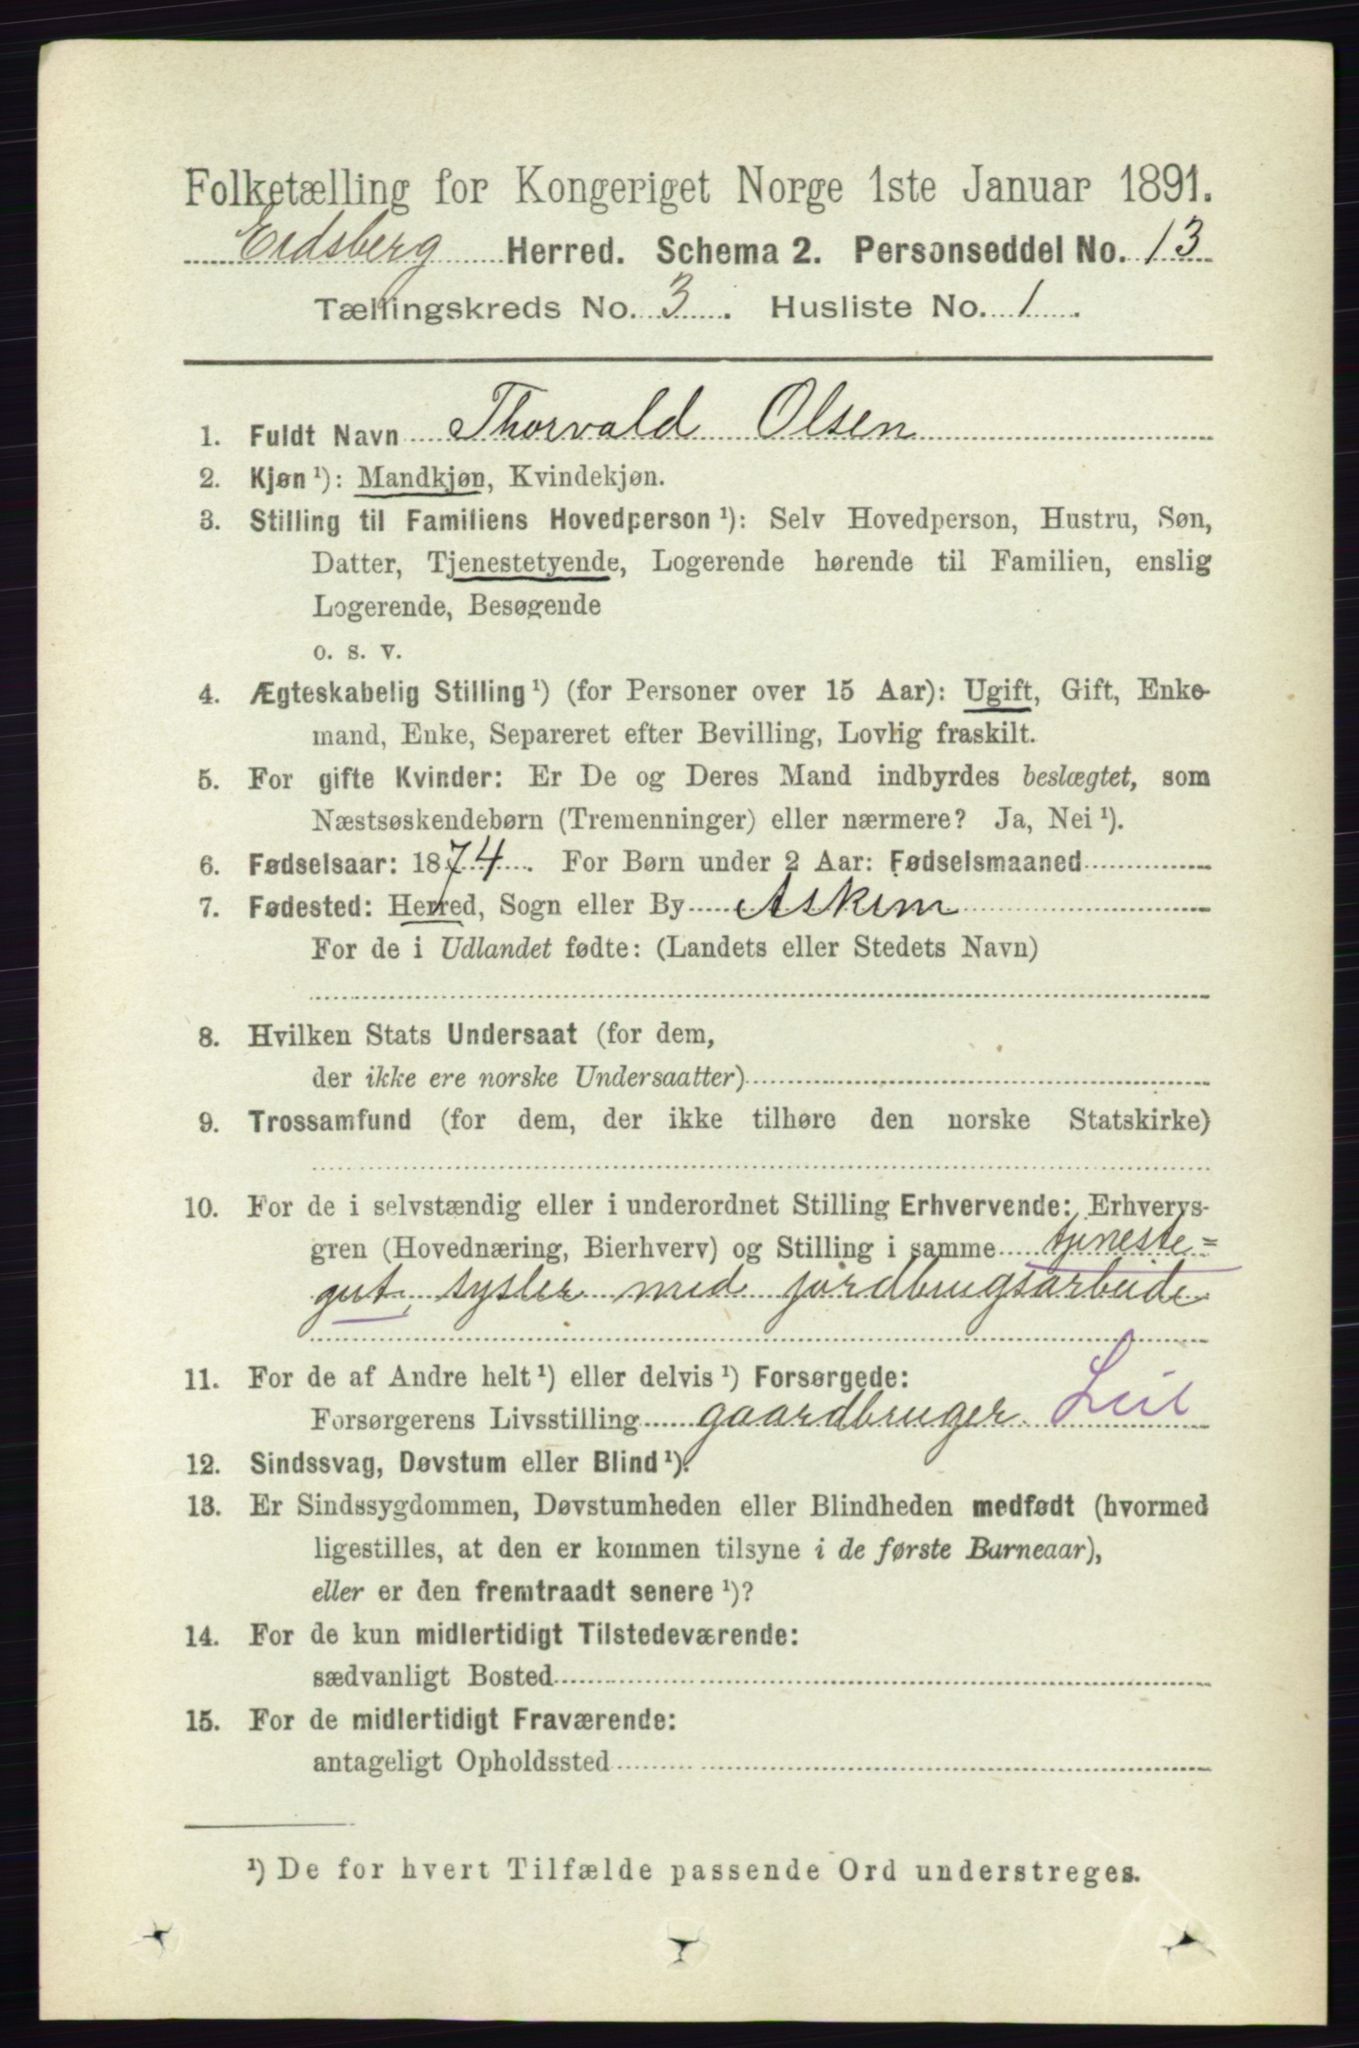 Folketælling for Kongeriget Norge 1ste Januar 1891.
Eidsberg Herred. Schema 2. Personseddel No. 13
Tællingskreds No. 3. Husliste No. 1.
1. Fuldt Navn Thorvald Olsen
2. Kjøn ¹): Mandkjøn, Kvindekjøn.
3. Stilling til Familiens Hovedperson ¹): Selv Hovedperson, Hustru, Søn,
Datter, Tjenestetyende, Logerende hørende til Familien, enslig
Logerende, Besøgende
o. s. v.
4. Ægteskabelig Stilling ¹) (for Personer over 15 Aar): Ugift, Gift, Enke-
mand, Enke, Separeret efter Bevilling, Lovlig fraskilt.
5. For gifte Kvinder: Er De og Deres Mand indbyrdes beslægtet, som
Næstsøskendebørn (Tremenninger) eller nærmere? Ja, Nei ¹).
6. Fødselsaar: 1874. For Børn under 2 Aar: Fødselsmaaned
7. Fødested: Herred, Sogn eller By Askim
For de i Udlandet fødte: (Landets eller Stedets Navn)
8. Hvilken Stats Undersaat (for dem,
der ikke ere norske Undersaatter)
9. Trossamfund (for dem, der ikke tilhøre den norske Statskirke)
10. For de i selvstændig eller i underordnet Stilling Erhvervende: Erhvervs-
gren (Hovednæring, Bierhverv) og Stilling i samme tjeneste=
gut, sysler med jordbrugsarbeide
11. For de af Andre helt ¹) eller delvis ¹) Forsørgede:
Forsørgerens Livsstilling gaardbruger Leil
12. Sindssvag, Døvstum eller Blind ¹).
13. Er Sindssygdommen, Døvstumheden eller Blindheden medfødt (hvormed
ligestilles, at den er kommen tilsyne i de første Barneaar),
eller er den fremtraadt senere ¹)?
14. For de kun midlertidigt Tilstedeværende:
sædvanligt Bosted
15. For de midlertidigt Fraværende:
antageligt Opholdssted
¹) De for hvert Tilfælde passende Ord understreges.